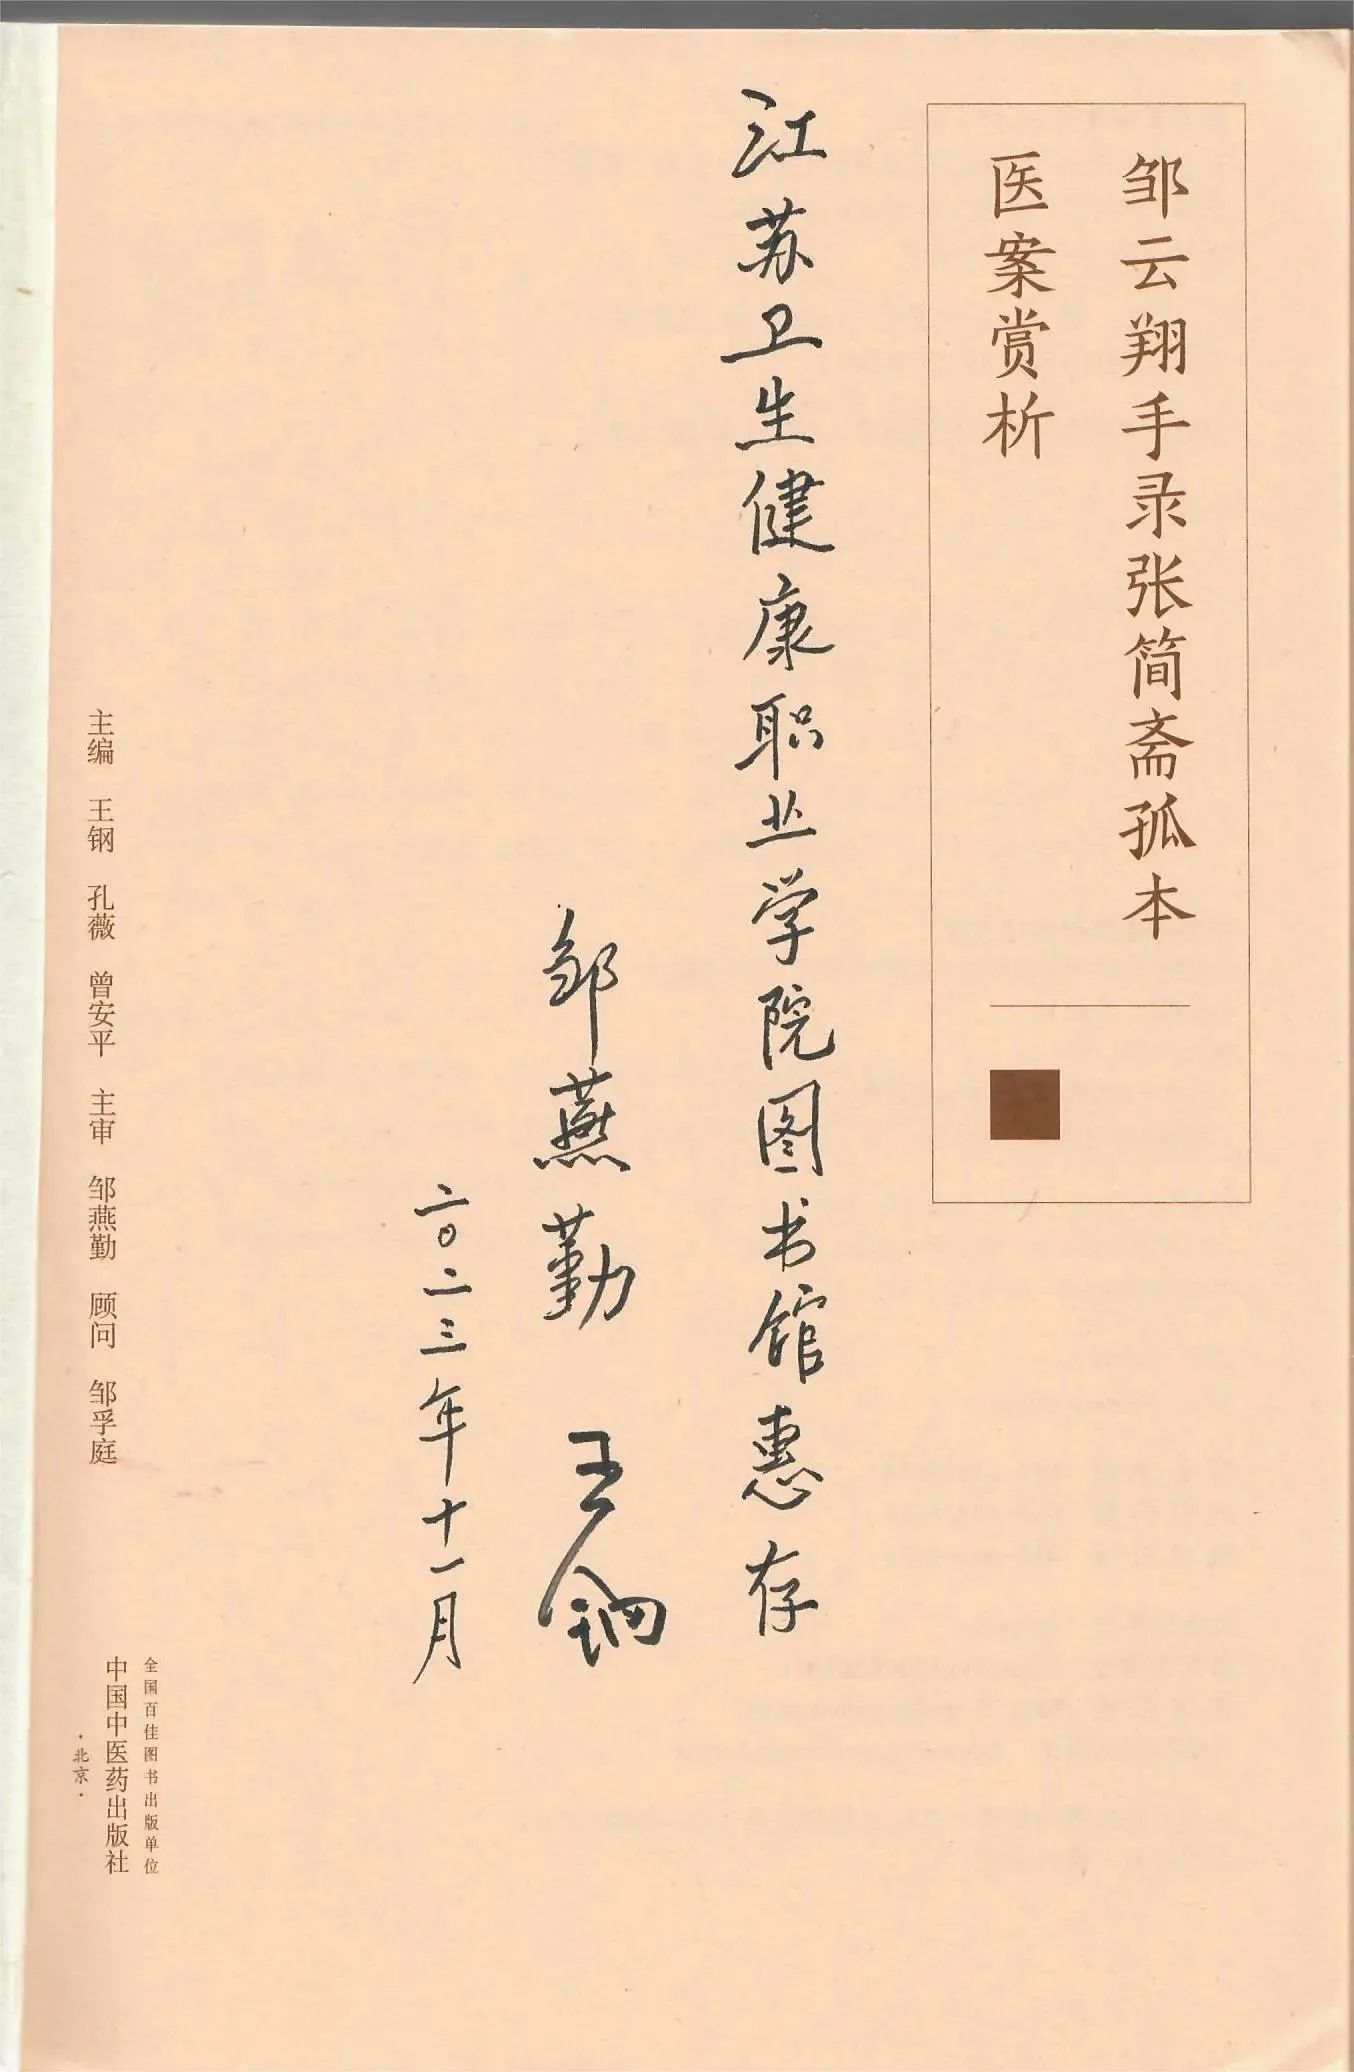 邹云翔手录张简斋孤本
医案赏析
江苏卫生健康职业学院图书馆惠存
邹燕勤 王钢
二〇二三年十一月
全国百佳图书出版单位
中国中医药出版社
·北京·
主编 王钢 孔薇 曾安平 主审 邹燕勤 顾问 邹孚庭